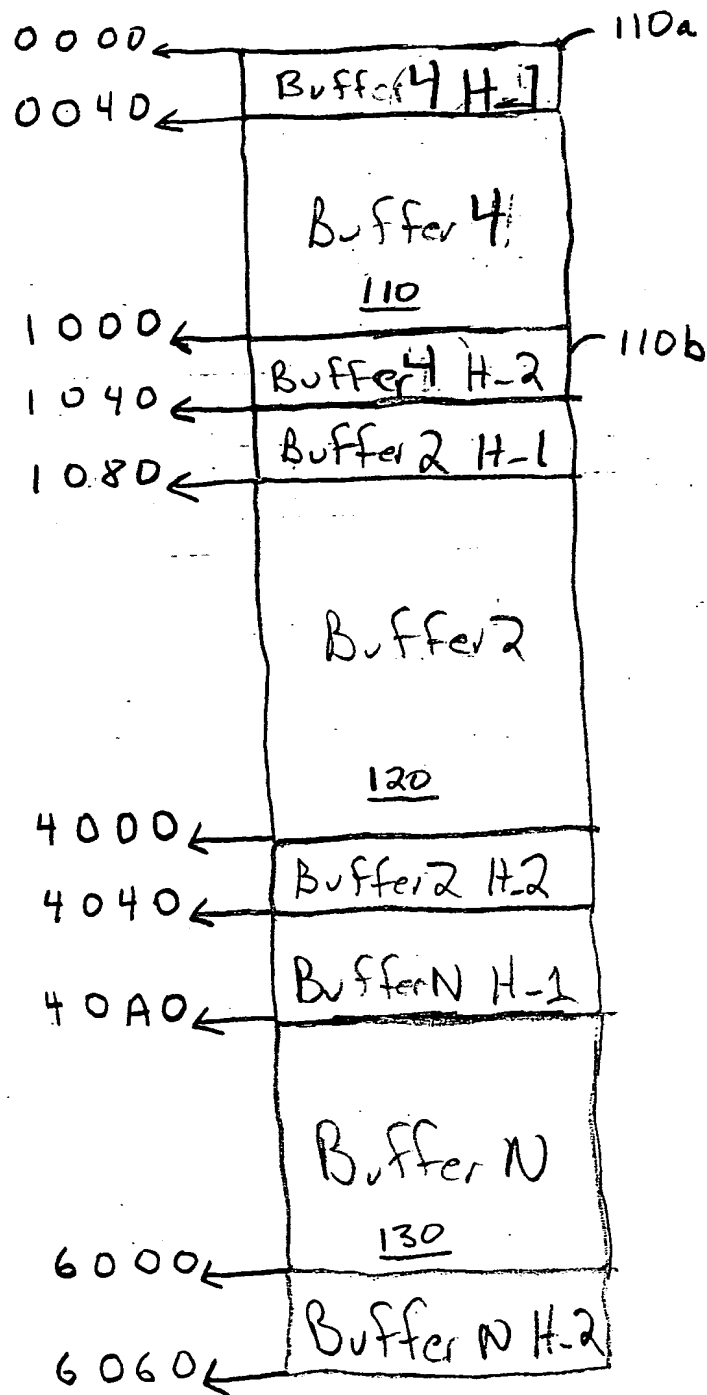 0000
110a
Buffer4 H_1
0040
Buffer 4
110
1000
110b
Buffer4 H_2
1040
Buffer2 H_1
1080
Buffer2
120
4000
Buffer2 H_2
4040
BufferN H_1
40A0
Buffer N
130
6000
Buffer N H_2
6060